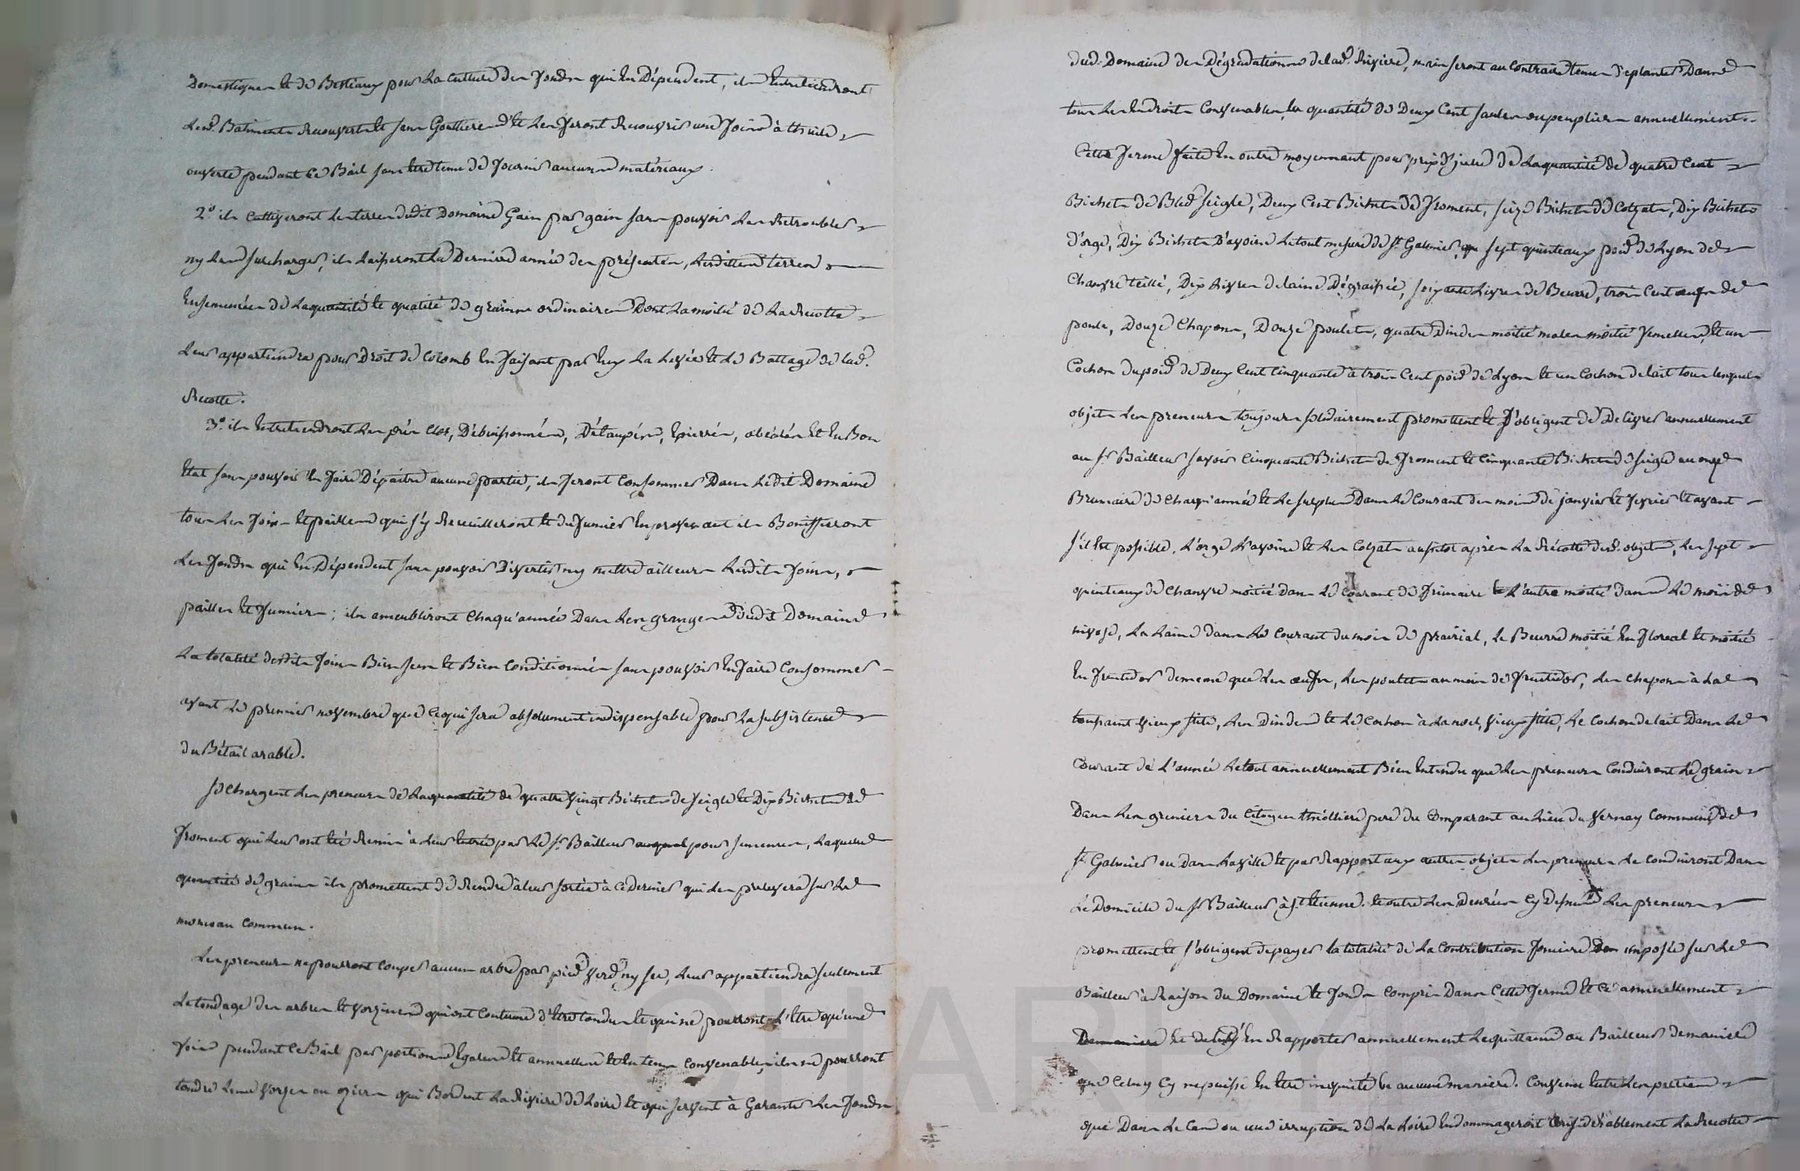 Domestiques et de Bestiaux pour la culture des fonds qui en Dépendent, ils Entretiendront
lesd. Batiments Recouverts et sans Gouttiere et les feront Recouvrir une fois à thuile
ouverte pendant ce Bail sans etre tenu de fournir aucuns matériaux.
2° ils Cultiveront les terres dudit Domaine Gain par gain sans pouvoir les Retroubler
ny les surcharger, ils laisseront la Derniere année des présentes, lesdittes terres
Ensemencées de la quantité et qualité de grains ordinaires Dont la moitié de la Recolte
leur appartiendra pour Droit de Colomb En faisant par Eux la levée et le Battage de lad.
Recolte.
3° ils Entretiendront les prés Clos, Débuissonnés, Détaupés, Epierrés, et En Bon
Etat sans pouvoir En faire Dépaitre aucune partie, ils feront Consommer Dans ledit Domaine
tous les foins et pailles qui s'y Recueilleront et du fumier En provenant ils Boniffieront
les fonds qui En Dépendent sans pouvoir Divertir ny mettre ailleurs lesdits foins,
pailles et fumiers; ils ameubliront Chaqu'année Dans les granges dudit Domaine
la totalité desdits foins Bien secs et Bien Conditionnés sans pouvoir En faire Consommer
avant le premier novembre que ce qui sera absolument indispensable pour la subsistance
du Bétail arable.
se chargent les preneurs de la quantité de quatre vingt Bichets de seigle et Dix Bichets de
froment qui leur ont été Remis à leur Entrée par le sr. Bailleur pour semences, laquelle
quantité de grains ils promettent de Rendre à leur sortie à ce Dernier qui les prelevera sur le
morceau commun.
Les preneurs ne pourront couper aucun arbre par pied verd ny sec, leur appartiendra seulement
le tondage des arbres et qui ont Coutume d'etre tondus et qui ne pourront l'etre qu'une
fois pendant ce Bail par portions Egales et annuelles et En tems Convenable, ils ne pourront
tondre les ou qui Bordent la Riviere de Loire et qui servent à Garantir les fonds
dud. Domaine des Dégradations de lad. Riviere, mais seront au Contraire tenus d'e planter Dans
tous les Endroits Convenables, la quantité de Deux Cent saules ou peupliers annuellement.
Cette ferme faite En outre moyennant pour prix d'icelle de la quantité de quatre Cent
Bichets de Bled seigle, Deux Cent Bichets de froment, seize Bichets de Colzat, Dix Bichets
D'orge, Dix Bichets D'avoine le tout mesure de St. Galmier, sept quinteaux poids de Lyon de
Chanvre teillé, Dix Livres de laine Dégraissée, soixante Livres de Beurre, trois Cent œufs de
poule, Douze Chapons, Douze poulets, quatre Dindes moitié males moitié femelles, et un
Cochon du poids de Deux Cent cinquante à trois Cent poids de Lyon et un Cochon de lait tous lesquels
objets les preneurs toujours solidairement promettent et s'obligent de Delivrer annuellement
au sr. Bailleur savoir Cinquante Bichets de froment et Cinquante Bichets de seigle au onze
Brumaire de Chaqu'année et le surplus Dans le Courant des mois de janvier et fevrier et avant
s'il Est possible, L'orge L'avoine et les Colzats aussitot après la Récolte desd. objets, les sept
quinteaux de Chanvre moitié dans le Courant de frimaire et l'autre moitié dans le mois de
nivose, la Laine dans le Courant du mois de prairial, le Beurre moitié En floreal et moitié
En fructidor de meme que les œufs, les poulets au mois de fructidor, les chapons à la
toussaint vieux stile, les Dindes et le Cochon à la noel, vieux stile, le Cochon de lait Dans le
Courant de L'année le tout annuellement Bien Entendu que les preneurs Conduiront le grain
Dans les greniers du Citoyen pere du Comparant au Lieu du Vernay Commune de
St. Galmier ou Dans la ville et par Rapport aux autres objets les preneurs les conduiront Dans
le Domicile du sr. Bailleur à St. Etienne. et outre les Denrées Cy Dessus les preneurs
promettent et s'obligent de payer la totalité de la Contribution fonciere imposée sur le
Bailleur à Raison du Domaine et fonds Compris Dans Cette ferme et Ce annuellement
et de luy En Rapporter annuellement les quittances au Bailleur de maniere
que Celuy Cy ne puisse En etre inquiété En aucune maniere. Convenu Entre les parties
que Dans le Cas ou une irruption de la Loire Endommageroit Considérablement la Recolte